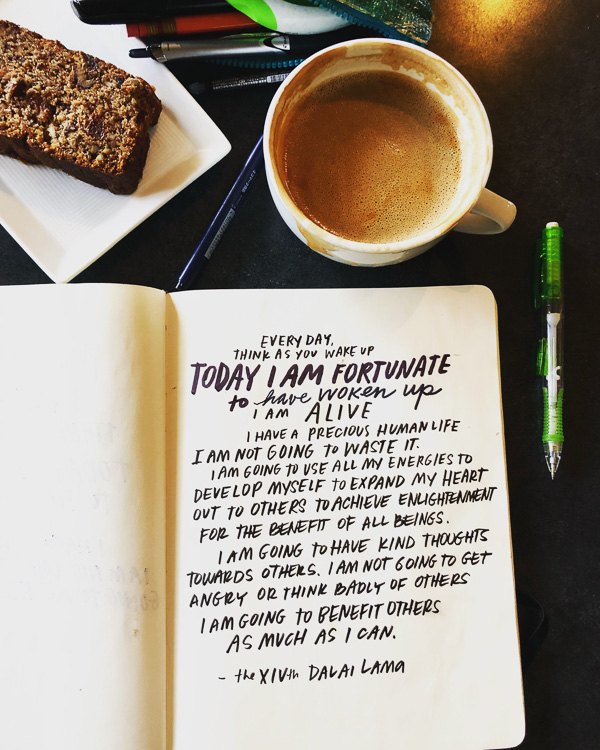 EVERY DAY,
THINK AS YOU WAKE UP
TODAY I AM FORTUNATE
to have woken up
I AM ALIVE
I HAVE A PRECIOUS HUMAN LIFE
I AM NOT GOING TO WASTE IT.
I AM GOING TO USE ALL MY ENERGIES TO
DEVELOP MYSELF TO EXPAND MY HEART
OUT TO OTHERS TO ACHIEVE ENLIGHTENMENT
FOR THE BENEFIT OF ALL BEINGS.
I AM GOING TO HAVE KIND THOUGHTS
TOWARDS OTHERS. I AM NOT GOING TO GET
ANGRY OR THINK BADLY OF OTHERS
I AM GOING TO BENEFIT OTHERS
AS MUCH AS I CAN.
- the XIVth DALAI LAMA